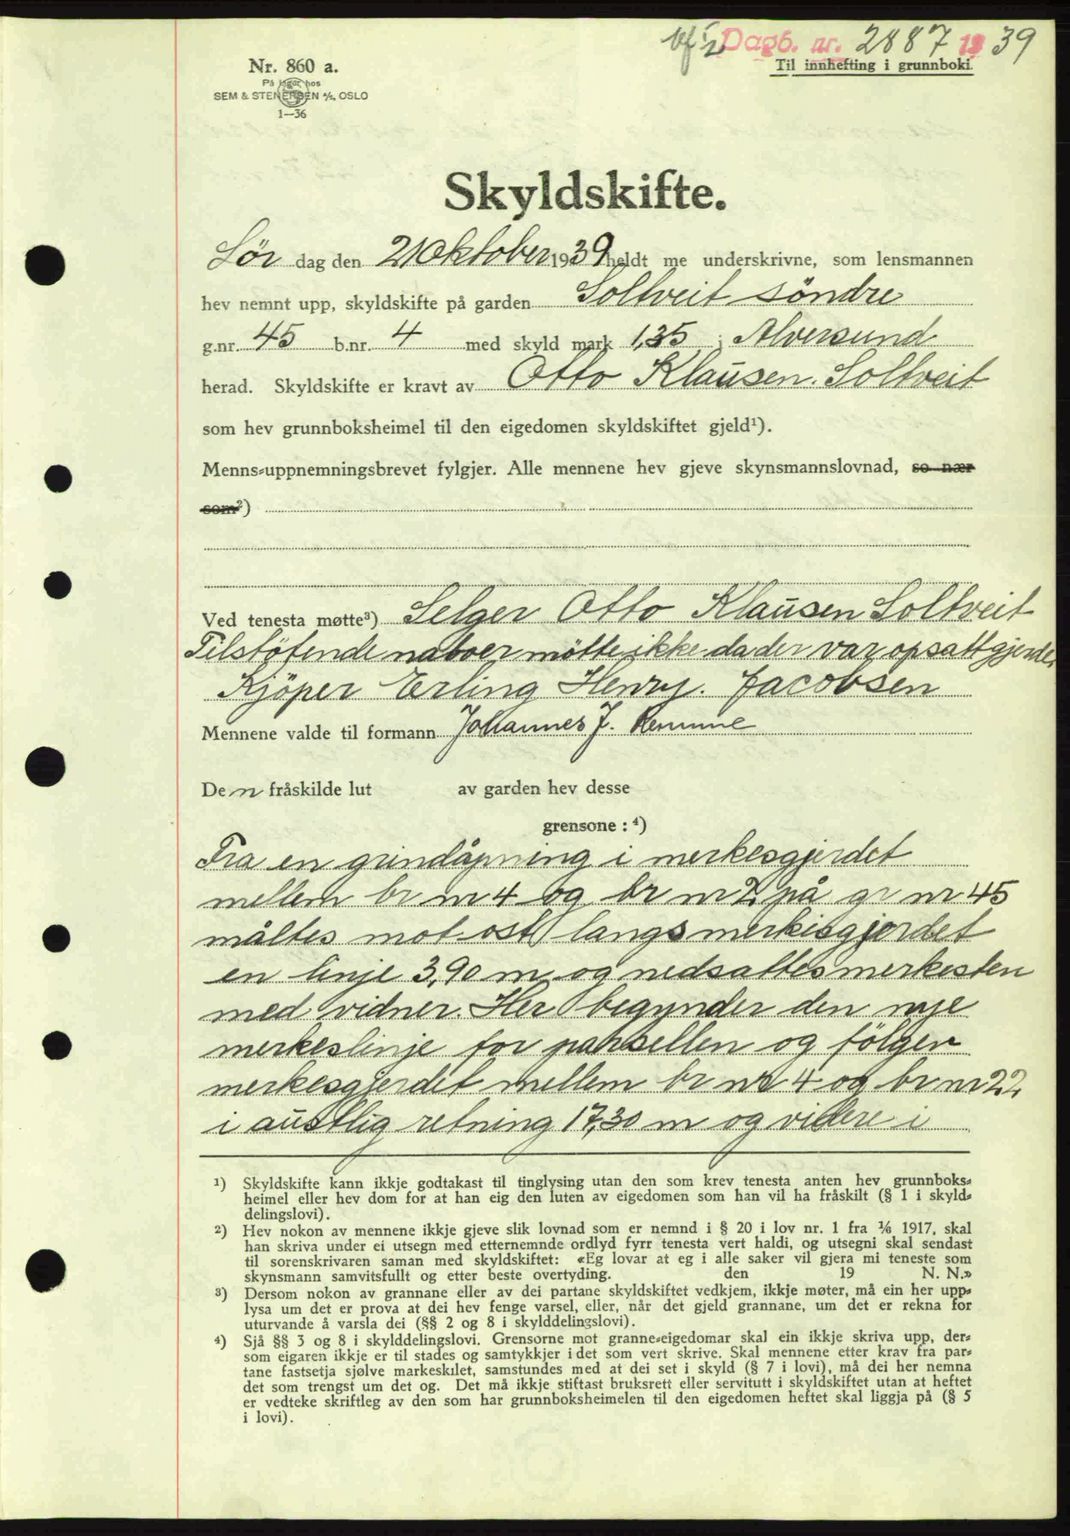 Dagb. nr. 2887 19 39
Til innhefting i grunnboki.
Nr. 860 a.
På lager hos
SEM & STENERSEN A/S, OSLO
1—36
Skyldskifte.
Lör dag den 21 Oktober 1939 heldt me underskrivne, som lensmannen
hev nemnt upp, skyldskifte på garden Soltveit söndre
g.nr. 45 b.nr. 4 med skyld mark 1,35 i Alversund
herad. Skyldskifte er kravt av Otto Klausen. Soltveit
som hev grunnboksheimel til den eigedomen skyldskiftet gjeld¹).
Menns-uppnemningsbrevet fylgjer. Alle mennene hev gjeve skynsmannslovnad, so nær
som²)
Ved tenesta møtte³) Selger Otto Klausen Soltveit
Tilstötende naboer mötte ikke da der var opsatt gjerde
Kjöper Erling Henry. Jacobsen
Mennene valde til formann Johannes J. Remme
De n fråskilde lut av garden hev desse
grensone: ⁴)
Fra en grindåpning i merkesgjerdet
mellem br nr 4 og br nr 2 på gr nr 45
måltes mot ost langs merkisgjerdet
en linje 3,90 m og nedsattes merkesten
med vidner. Her begynder den nye
merkeslinje for parsellen og fölger
merkesgjerdet mellem br nr 4 og br nr 22
i austlig retning 17,30 m og videre i
¹) Skyldskifte kann ikkje godtakast til tinglysing utan den som krev tenesta anten hev grunnboks-
heimel eller hev dom for at han eig den luten av eigedomen som han vil ha fråskilt (§ 1 i skyld-
delingslovi).
²) Hev nokon av mennene ikkje gjeve slik lovnad som er nemnd i § 20 i lov nr. 1 fra 1/6 1917, skal
han skriva under ei utsegn med etternemnde ordlyd fyrr tenesta vert haldi, og utsegni skal sendast
til sorenskrivaren saman med skyldskiftet: «Eg lovar at eg i alle saker vil gjera mi teneste som
skynsmann samvitsfullt og etter beste overtyding. den 19 N. N.»
³) Dersom nokon av grannane eller av dei partane skyldskiftet vedkjem, ikkje møter, må ein her upp-
lysa um det er prova at dei hev fenge varsel, eller, når det gjeld grannane, um det er rekna for
uturvande å varsla dei (§§ 2 og 8 i skylddelingslovi).
⁴) Sjå §§ 3 og 8 i skylddelingslovi. Grensorne mot granne-eigedomar skal ein ikkje skriva upp, der-
som eigaren ikkje er til stades og samtykkjer i det som vert skrive. Skal mennene etter krav fra par-
tane fastsetja sjølve markeskilet, samstundes med at dei set i skyld (§ 7 i lovi), må dei her nemna
det som trengst um det og. Det må ikkje stiftast bruksrett eller servitutt i skyldskiftet utan at heftet
er vedteke skriftleg av den som har grunnboksheimelen til den eigedomen heftet skal liggja på (§ 5
i lovi).